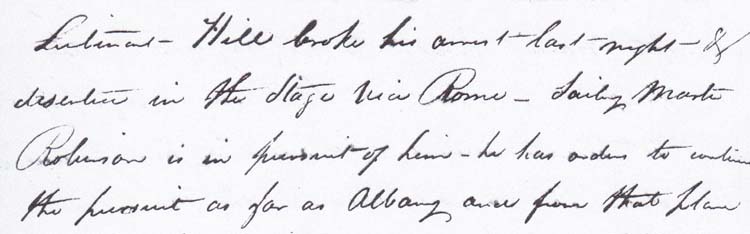 Lieutenant Hill broke his arrest last night &
deserted in the Stage via Rome – Sailing Master
Robinson is in pursuit of him – he has orders to continue
the pursuit as far as Albany and from that place